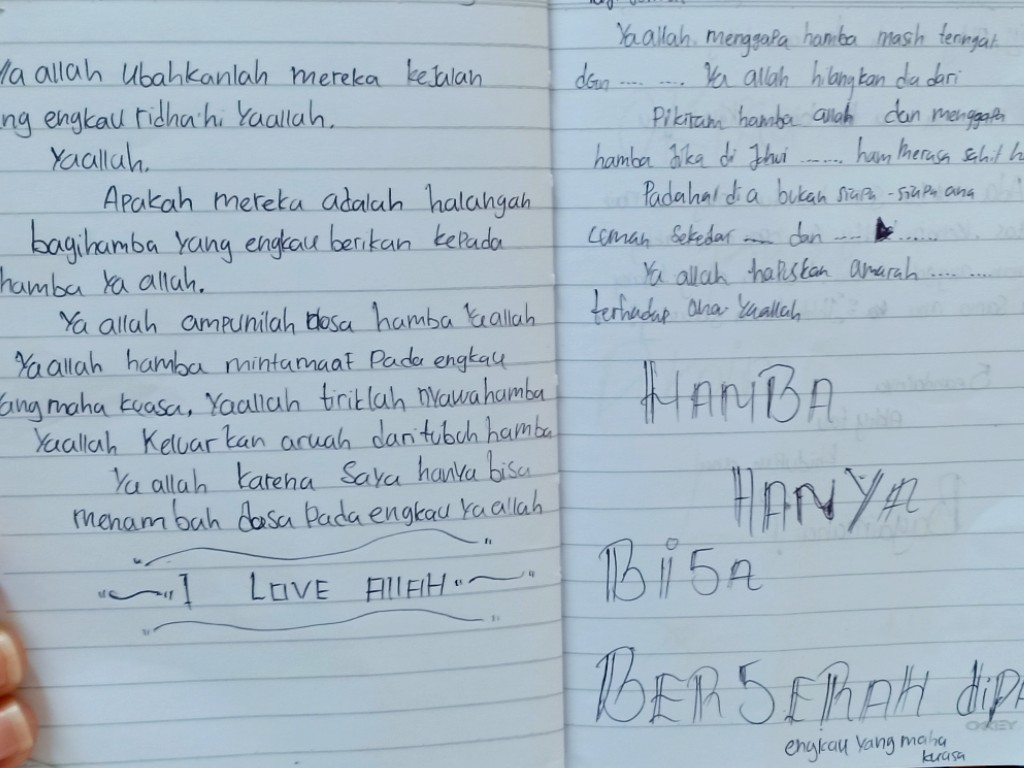 Ya allah Ubahkanlah mereka kejalan
ng engkau ridhahi Yaallah.
Yaallah.
Apakah mereka adalah halangan
bagihamba Yang engkau berikan kepada
hamba Ya allah.
Ya allah ampunilah dosa hamba Yaallah
Yaallah hamba mintamaaf Pada engkau
ang maha kuasa, Yaallah tiriklah nyawahamba
Yaallah Keluarkan aruah daritubuh hamba
Ya allah Karena Saya hanya bisa
menambah dosa Pada engkau Yaallah
I LOVE AllAH
Yaallah. menggapa hamba mash teringat
dgn ..... ..... Ya allah hilangkan da dari
Pikiram hamba allah dan menggapa
hamba Jika di ....... ham merasa sakit h
Padahal dia bukan siapa-siapa ana
cuman Sekedar .... dan .... ......
Ya allah hapuskan amarah .... ....
terhadap ana Yaallah
HAMBA
HANYA
BiSA
BERSERAH diPA
engkau yang maha
kuasa